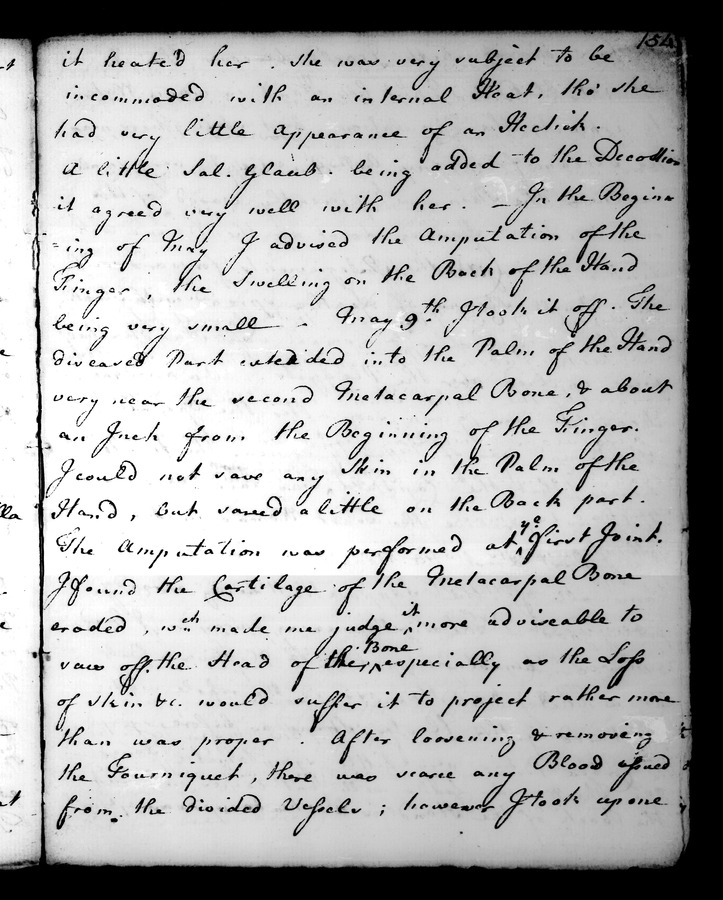 154
it heated her . she was very subject to be
incommoded with an internal Heat, tho' she
had very little Appearance of an Hectick .
A little Sal. Glaub. being added to the Decoction
it agreed very well with her . – In the Beginn
=ing of May I advised the Amputation of the
Finger, the Swelling on the Back of the Hand
being very small – May 9th I took it off . The
diseased Part extended into the Palm of the Hand
very near the second Metacarpal Bone, & about
an Inch from the Beginning of the Finger.
I could not save any Skin in the Palm of the
Hand, but saved a little on the Back part .
The Amputation was performed at ye first Joint.
I found the Cartilage of the Metacarpal Bone
eroded, wch made me judge it more adviseable to
saw off the Head of the Bone, especially as the Loss
of skin &c. would suffer it to project rather more
than was proper . After loosening & removing
the Tourniquet, there was scarce any Blood issued
from the divided Vessels ; however I took up one
lla